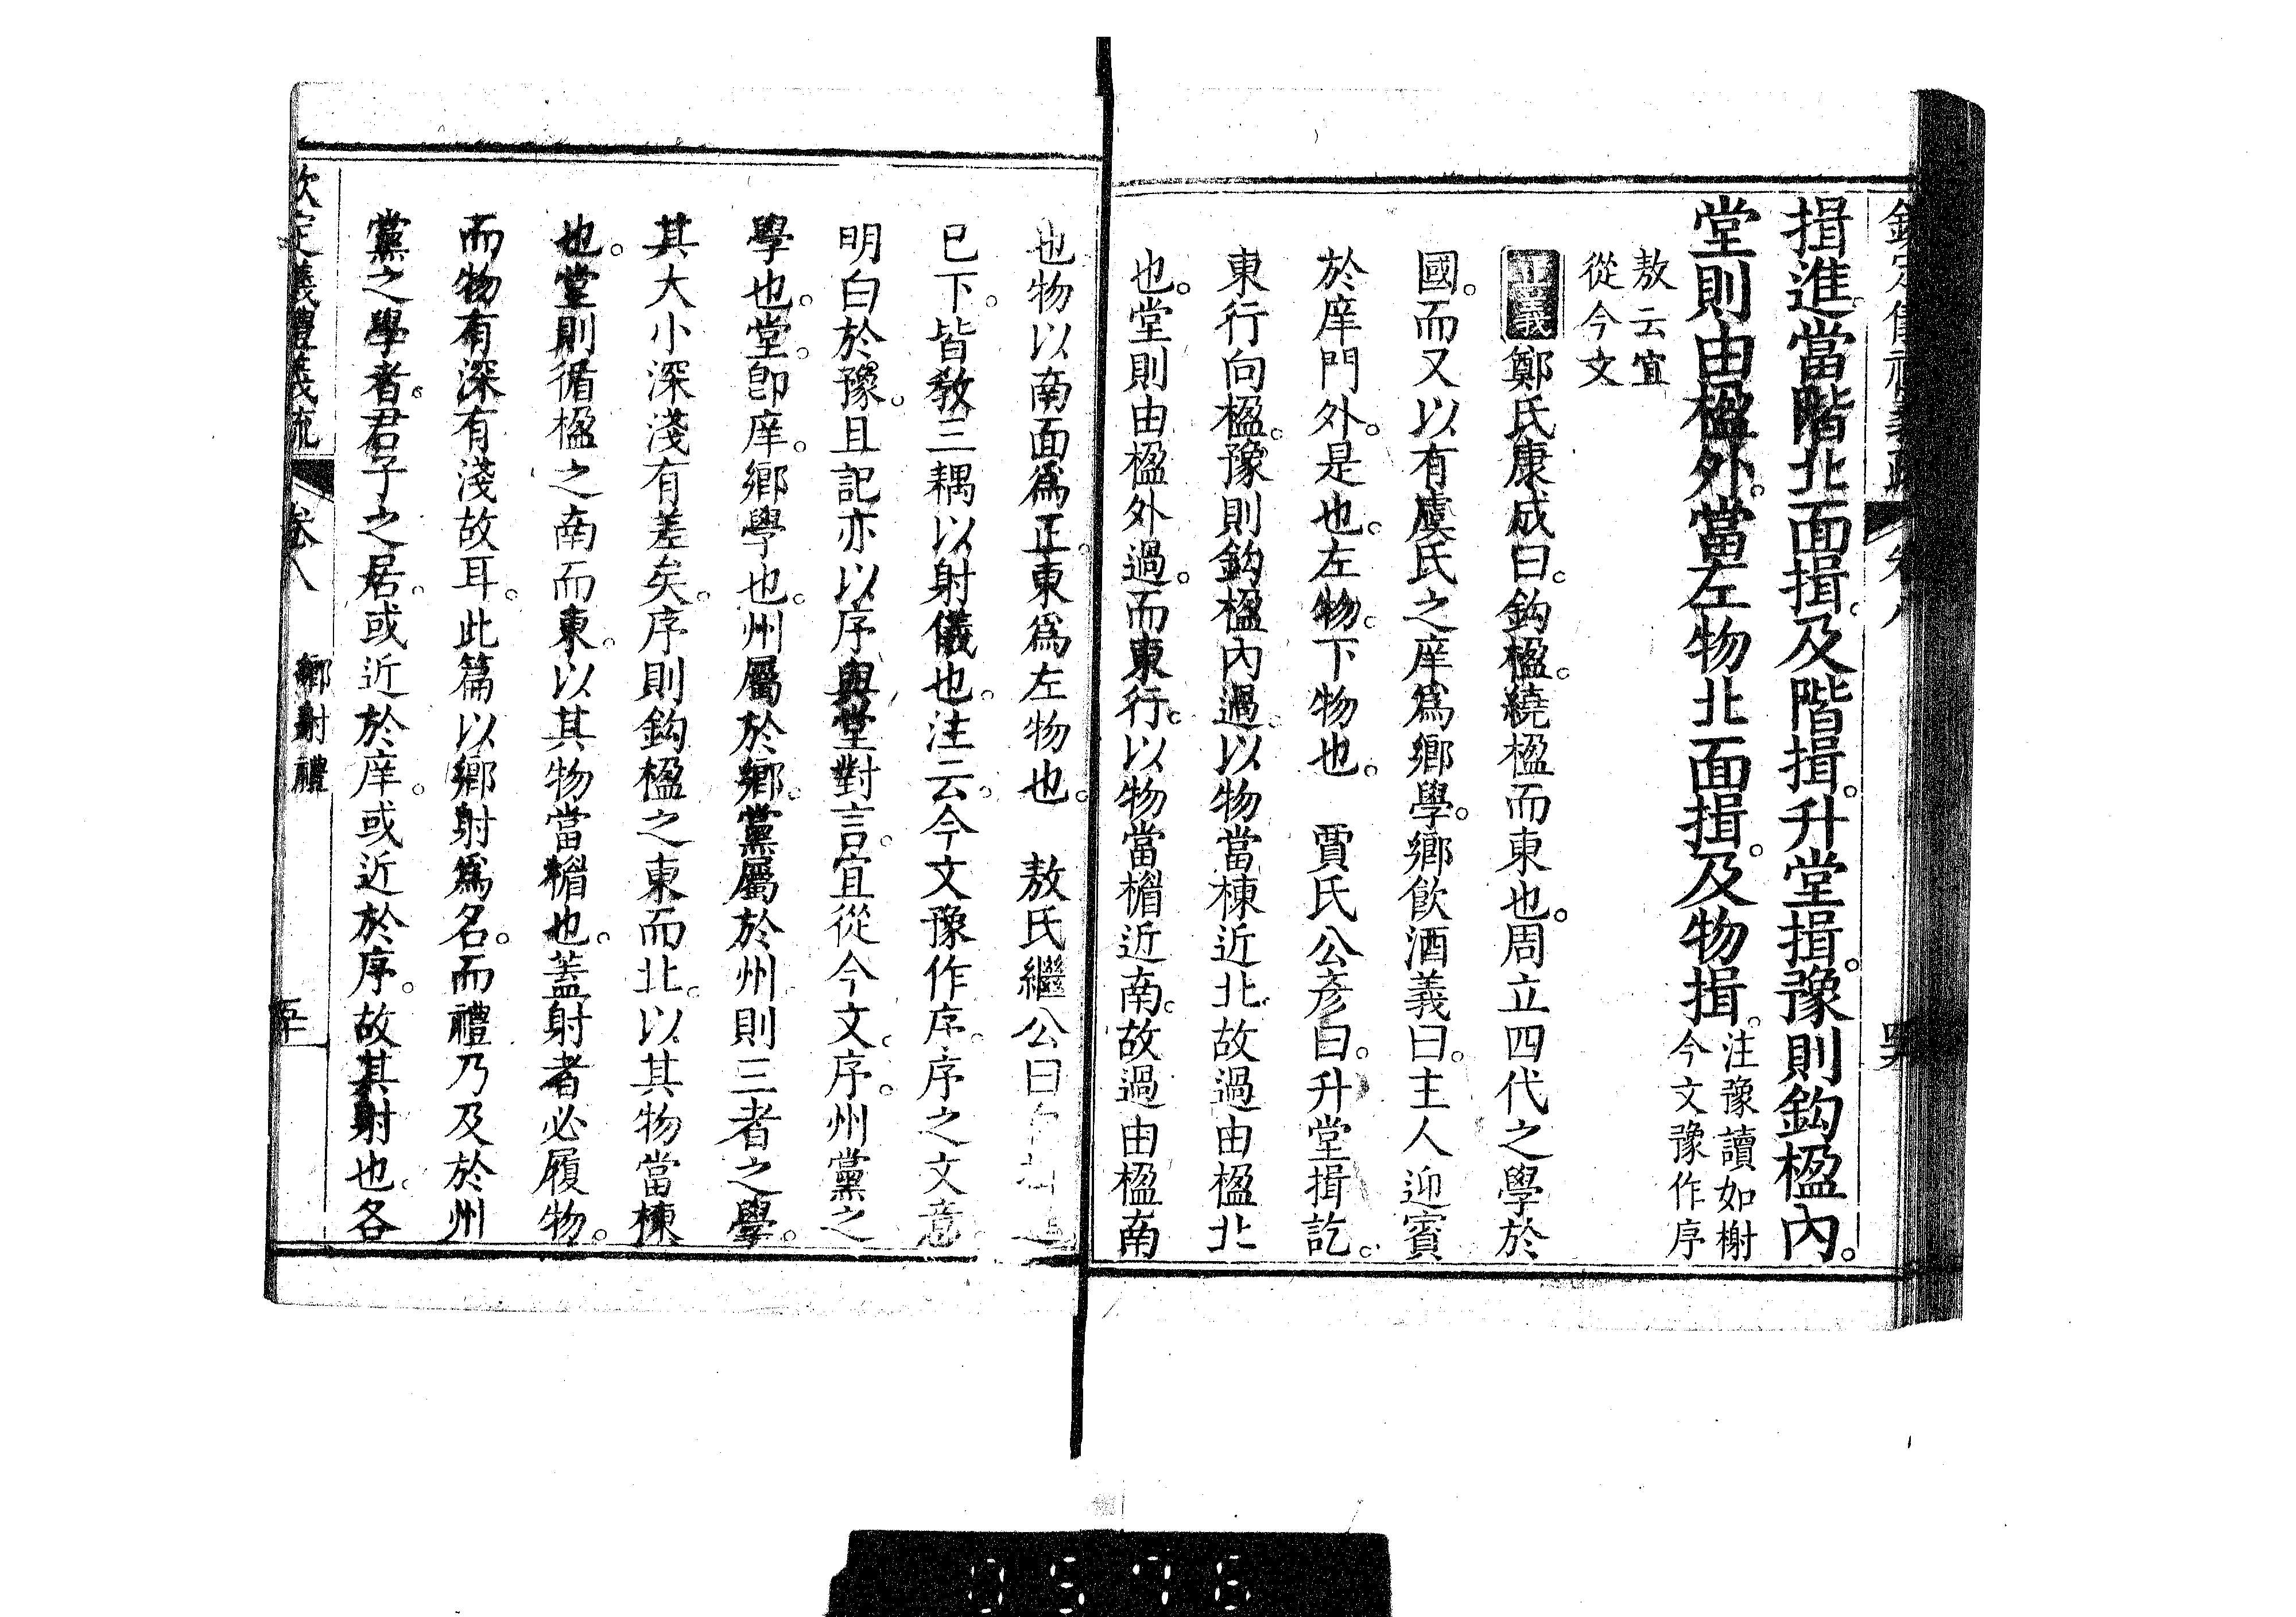 揖進。當階北面揖。及階揖。升堂揖。豫則鈎楹內。
堂則由楹外。當左物北面揖。及物揖。注豫讀如榭
今文豫作序
敖云宜
從今文
正義鄭氏康成曰。鈎楹。繞楹而東也。周立四代之學於
國。而又以有虞氏之庠爲鄉學。鄉飲酒義曰。主人迎賓
於庠門外。是也。左物。下物也。賈氏公彥曰。升堂揖訖。
東行向楹。豫則鈎楹內過。以物當棟近北。故過由楹北
也。堂則由楹外過。而東行。以物當楣近南。故過由楹南
也物以南面爲正。東爲左物也。敖氏繼公曰
已下。皆教三耦以射儀也。注云。今文豫作序。序之文意
明白於豫。且記亦以序與堂對言。宜從今文。序。州黨之
學也。堂。卽庠。鄉學也。州屬於鄉。黨屬於州。則三者之學。
其大小深淺有差矣。序則鈎楹之東而北。以其物當棟
也。堂則循楹之南而東。以其物當楣也。蓋射者必履物。
而物有深有淺故耳。此篇以鄉射爲名。而禮乃及於州
黨之學者。君子之居。或近於庠。或近於序。故其射也。各
欽定儀禮義疏 卷八 鄉射禮